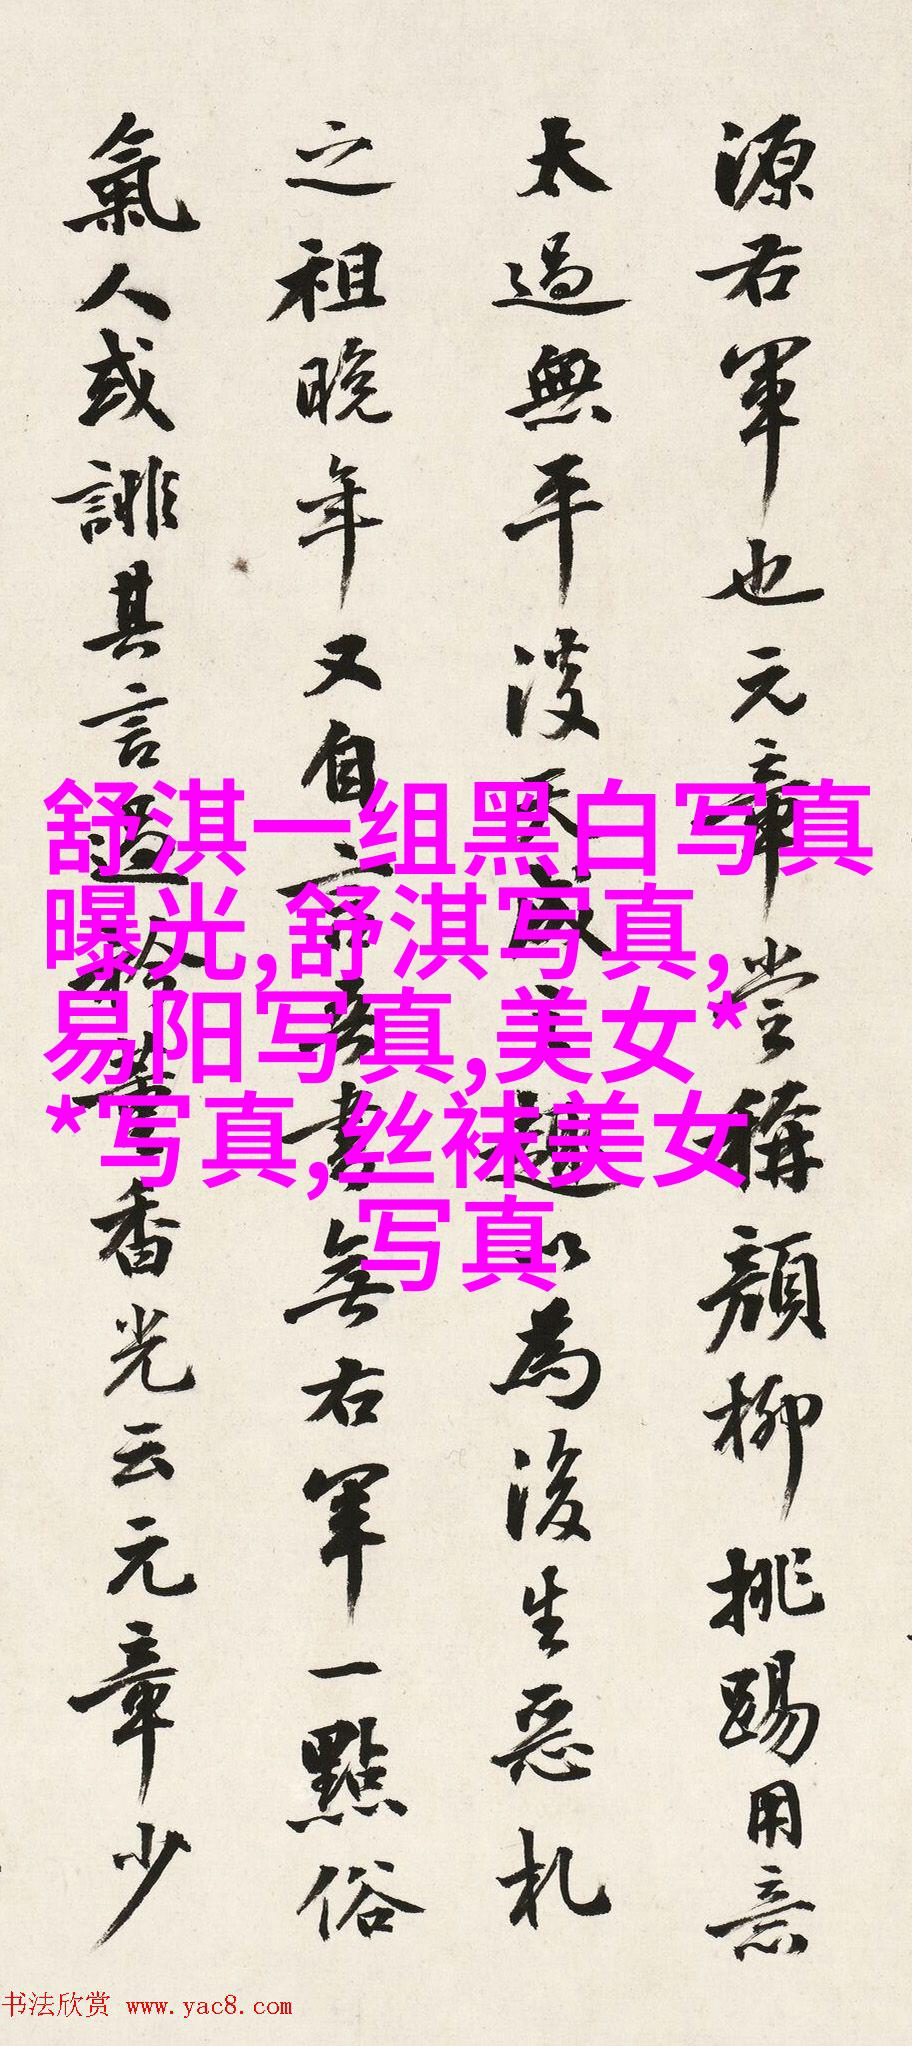 源右軍也元章嘗稱顏柳挑踢用意
太過無平淡天成之趣以為後生惡札
之祖晚年又自言吾書無右軍一點俗
氣人或誹其言過矜董香光云元章少
舒淇一组黑白写真
曝光,舒淇写真,
易阳写真,美女*
*写真,丝袜美女
写真
书法欣赏 www.yac8.com